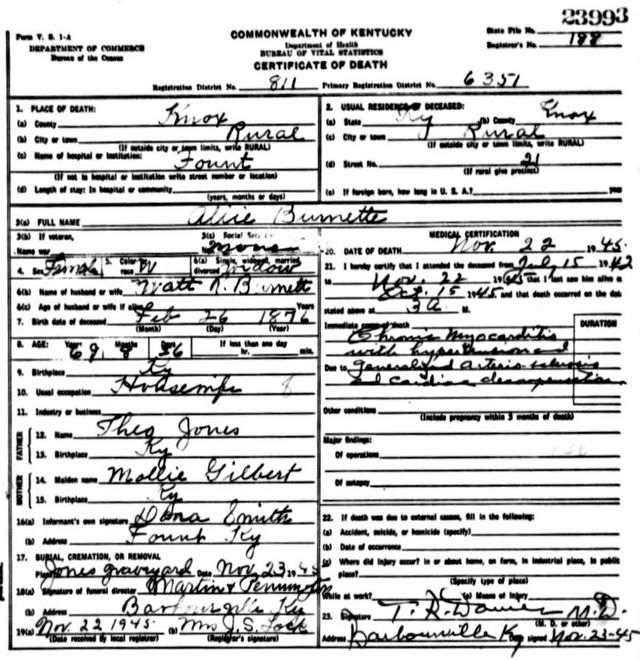 23993
Form V. S. 1-A
COMMONWEALTH OF KENTUCKY
State File No.
DEPARTMENT OF COMMERCE
Department of Health
Bureau of the Census
BUREAU OF VITAL STATISTICS
Registrar's No. 188
CERTIFICATE OF DEATH
Registration District No. 811 Primary Registration District No. 6351
1. PLACE OF DEATH:
(a) County Knox
(b) City or town Rural
(If outside city or town limits, write RURAL)
(c) Name of hospital or institution: Fount
(If not in hospital or institution write street number or location)
(d) Length of stay: In hospital or community
(years, months or days)
2. USUAL RESIDENCE OF DECEASED:
(a) State Ky (b) County Knox
(c) City or town Rural
(If outside city or town limits, write RURAL)
(d) Street No. 21
(If rural give precinct)
(e) If foreign born, how long in U. S. A.? years
3(a) FULL NAME Alice Burnette
3(b) If veteran,
Name war
3(c) Social Security
No. None
4. Sex Female 5. Color or race W 6(a) Single, widowed, married, divorced Widow
6(b) Name of husband or wife Watt R. Burnett
6(c) Age of husband or wife if alive Years
7. Birth date of deceased Feb 26 1876
(Month) (Day) (Year)
8. AGE: Years 69 Months 8 Days 26 If less than one day
hr. min.
9. Birthplace Ky
10. Usual occupation Housewife
11. Industry or business
FATHER
12. Name Theo Jones
13. Birthplace Ky
MOTHER
14. Maiden name Mollie Gilbert
15. Birthplace Ky
16(a) Informant's own signature Dona Smith
(b) Address Fount Ky
17. BURIAL, CREMATION, OR REMOVAL
Place Jones graveyard Date Nov. 23 1945
18(a) Signature of funeral director Martin & Pennington
(b) Address Barbourville Ky
19(a) Nov. 22 1945. (b) Mrs J. S. Lock
(Date received by local registrar) (Registrar's signature)
MEDICAL CERTIFICATION
20. DATE OF DEATH Nov. 22 1945.
21. I hereby certify that I attended the deceased from July 15 1942
to Nov. 22 1945 that I last saw him alive on
Oct. 15 1945 and that death occurred on the date
stated above at 3 A M.
Immediate cause of death
DURATION
Chronic Myocarditis
with hypertension and
Due to generalized arterio-sclerosis
and cardiac decompensation
Other conditions
(Include pregnancy within 3 months of death)
Major findings:
Of operations
Of autopsy
22. If death was due to external causes, fill in the following:
(a) Accident, suicide, or homicide (specify)
(b) Date of occurrence
(c) Where did injury occur? in or about home, on farm, in industrial place, in public
place?
(Specify type of place)
While at work? (e) Means of injury
23. Signature T. R. Davies M. D.
(M. D. or other)
Address Barbourville Ky Date signed Nov. 23-45